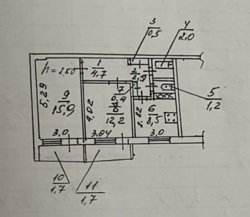 3
0,5
4
2,0
h=2,50
1
4,7
2
2,9
5,29
9
15,9
4,02
7
8
12,2
6
8,5
5
1,2
3,0
3,84
3,0
10
1,7
11
1,7